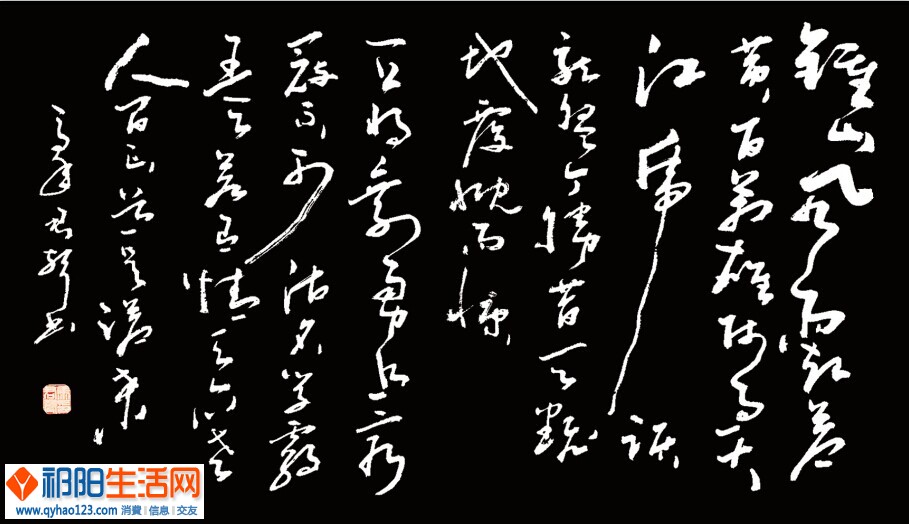 鍾山风雨起苍
黄百萬雄师过大
江虎踞
龙盘今勝昔天翻
地覆慨而慷
宜将剩勇追穷
寇不可沽名学霸
王天若有情天亦老
人间正道是滄桑
祁阳生活网
www.qyhao123.com 消費 信息 交友